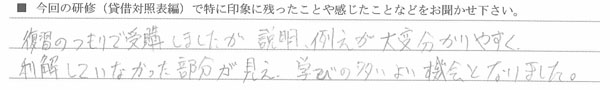 ■ 今回の研修（貸借対照表編）で特に印象に残ったことや感じたことなどをお聞かせ下さい。
復習のつもりで受購しましたが 説明、例えが大変分かりやすく、
利解していなかった部分が見え、学びの多いよい機会となりました。